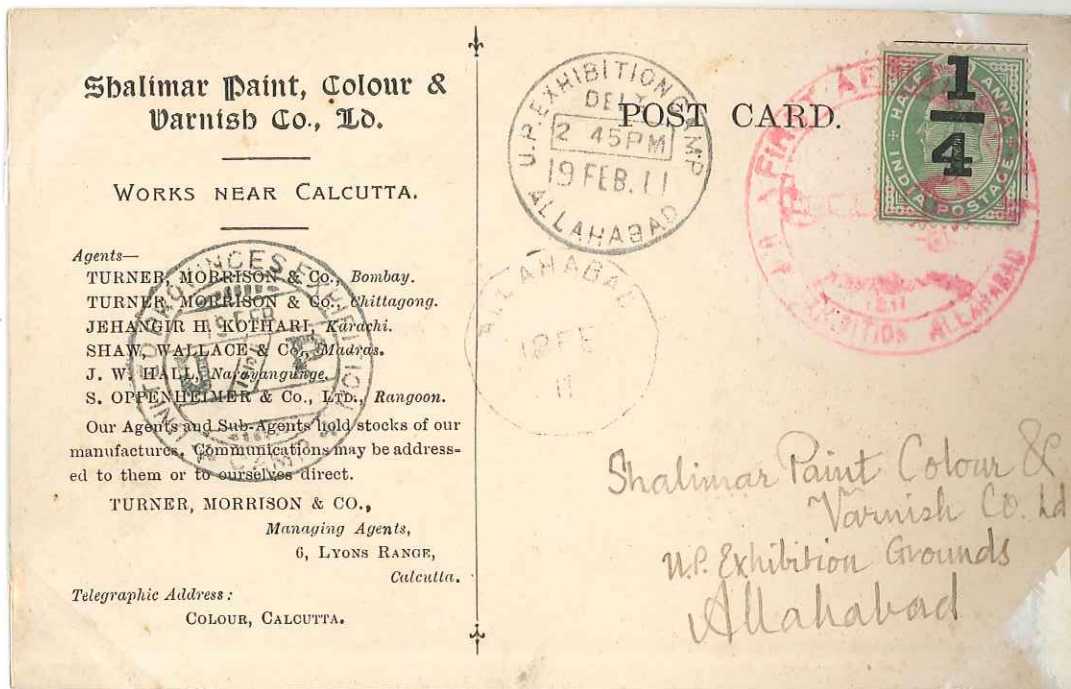 Shalimar Paint, Colour &
Varnish Co., Ld.
WORKS NEAR CALCUTTA.
Agents—
TURNER, MORRISON & Co., Bombay.
TURNER, MORRISON & Co., Chittagong.
JEHANGIR H. KOTHARI, Karachi.
SHAW, WALLACE & Co., Madras.
J. W. HALL, Narayangunge.
S. OPPENHEIMER & Co., LTD., Rangoon.
Our Agents and Sub-Agents hold stocks of our
manufactures. Communications may be address-
ed to them or to ourselves direct.
TURNER, MORRISON & CO.,
Managing Agents,
6, LYONS RANGE,
Calcutta.
Telegraphic Address:
COLOUR, CALCUTTA.
UNITED PROVINCES EXHIBITION
CAMP
19 FEB
1911
U P
U.P. EXHIBITION CAMP
DELY
2 45PM
19 FEB. 11
ALLAHABAD
POST CARD.
ALLAHABAD
FE
11
FIRST AERIAL
U.P. EXHIBITION ALLAHABAD
1911
HALF ANNA
1/4
INDIA POSTAGE
Shalimar Paint Colour &
Varnish Co. Ld
U.P. Exhibition Grounds
Allahabad